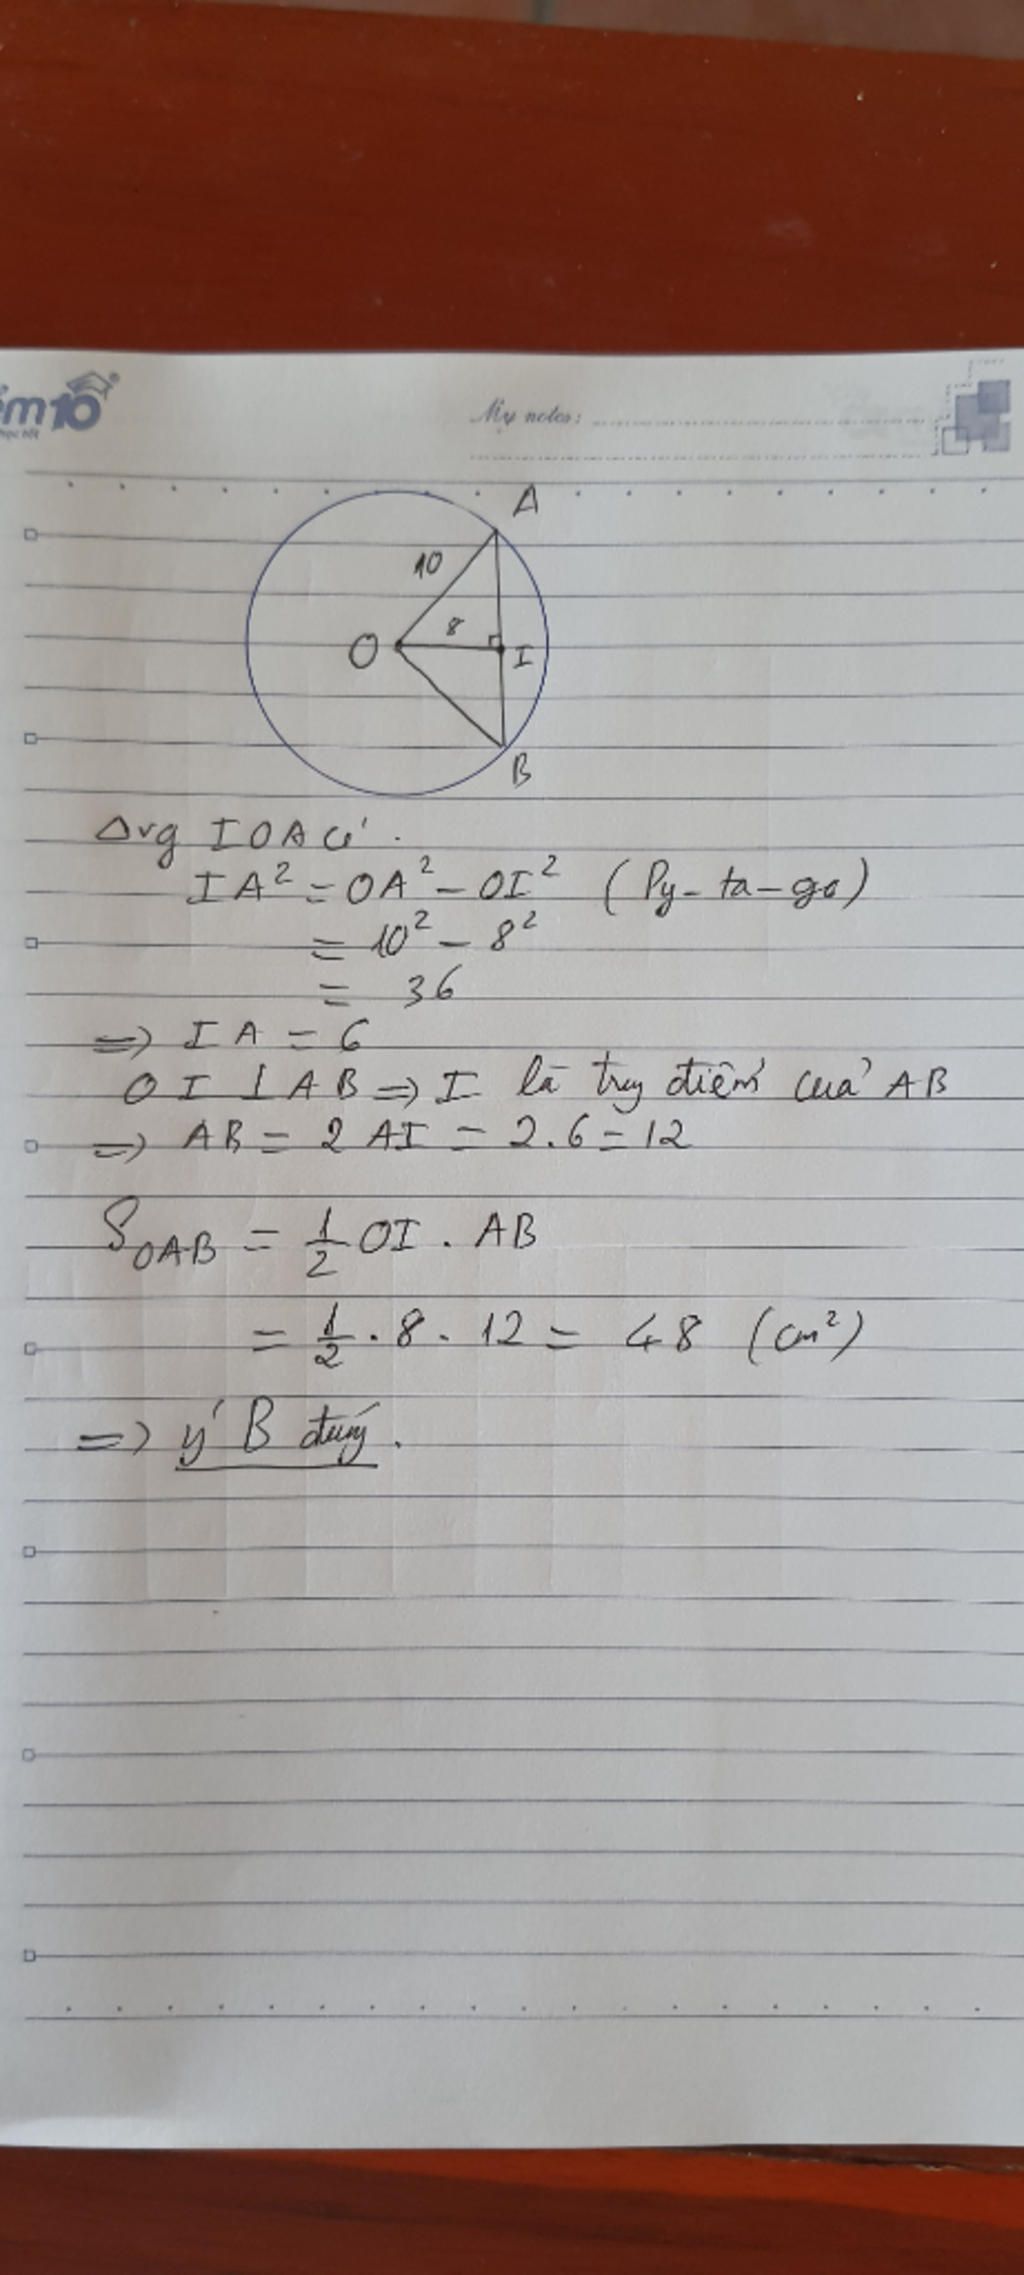 m10
My notes:
A
10
8
O
I
B
Δvg IOA có.
IA² = OA² - OI² (Py-ta-go)
= 10² - 8²
= 36
=> IA = 6
OI ⊥ AB => I là trg điểm của AB
=> AB = 2AI = 2.6 = 12
S_OAB = 1/2 OI . AB
= 1/2 . 8 . 12 = 48 (cm²)
=> ý B đúng.